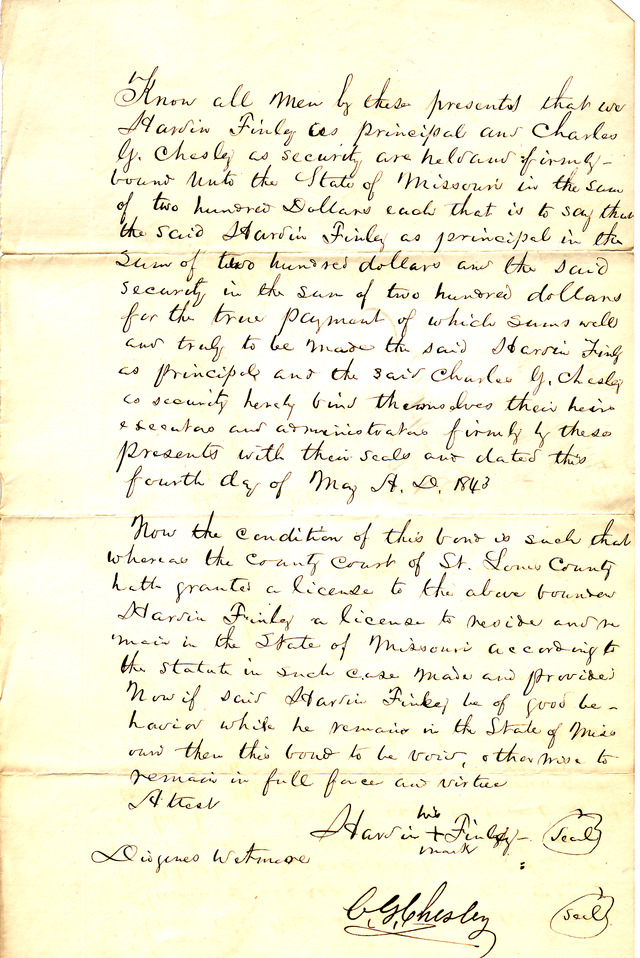 Know all Men by these presents that we
Hardin Finley as principal and Charles
G. Chesley as security are held and firmly
bound unto the State of Missouri in the sum
of two hundred Dollars each that is to say that
the said Hardin Finley as principal in the
sum of two hundred dollars and the said
security in the sum of two hundred dollars
for the true payment of which sums well
and truly to be made the said Hardin Finly
as principle and the said Charles G. Chesley
as security hereby bind themselves their heirs
executors and administrators firmly by these
presents with their seals and dated this
fourth day of May A. D. 1843
Now the condition of this bond is such that
whereas the County Court of St. Louis County
hath granted a license to the above bounden
Hardin Finley a license to reside and re
main in the State of Missouri according to
the statute in such case made and provided
Now if said Hardin Finley be of good be-
havior while he remain in the State of Miss
ouri then this bond to be void, otherwise to
remain in full force and virtue
Attest
his
Hardin + Finley - Seal
mark
Diogenes Wetmore
C. G. Chesley Seal